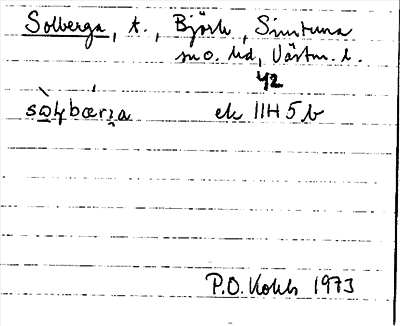 Solberga, t., Björk, Simtuna
sn o. hd, Västm. l.
42
ek 11H 5b
P.O. Kohls 1973